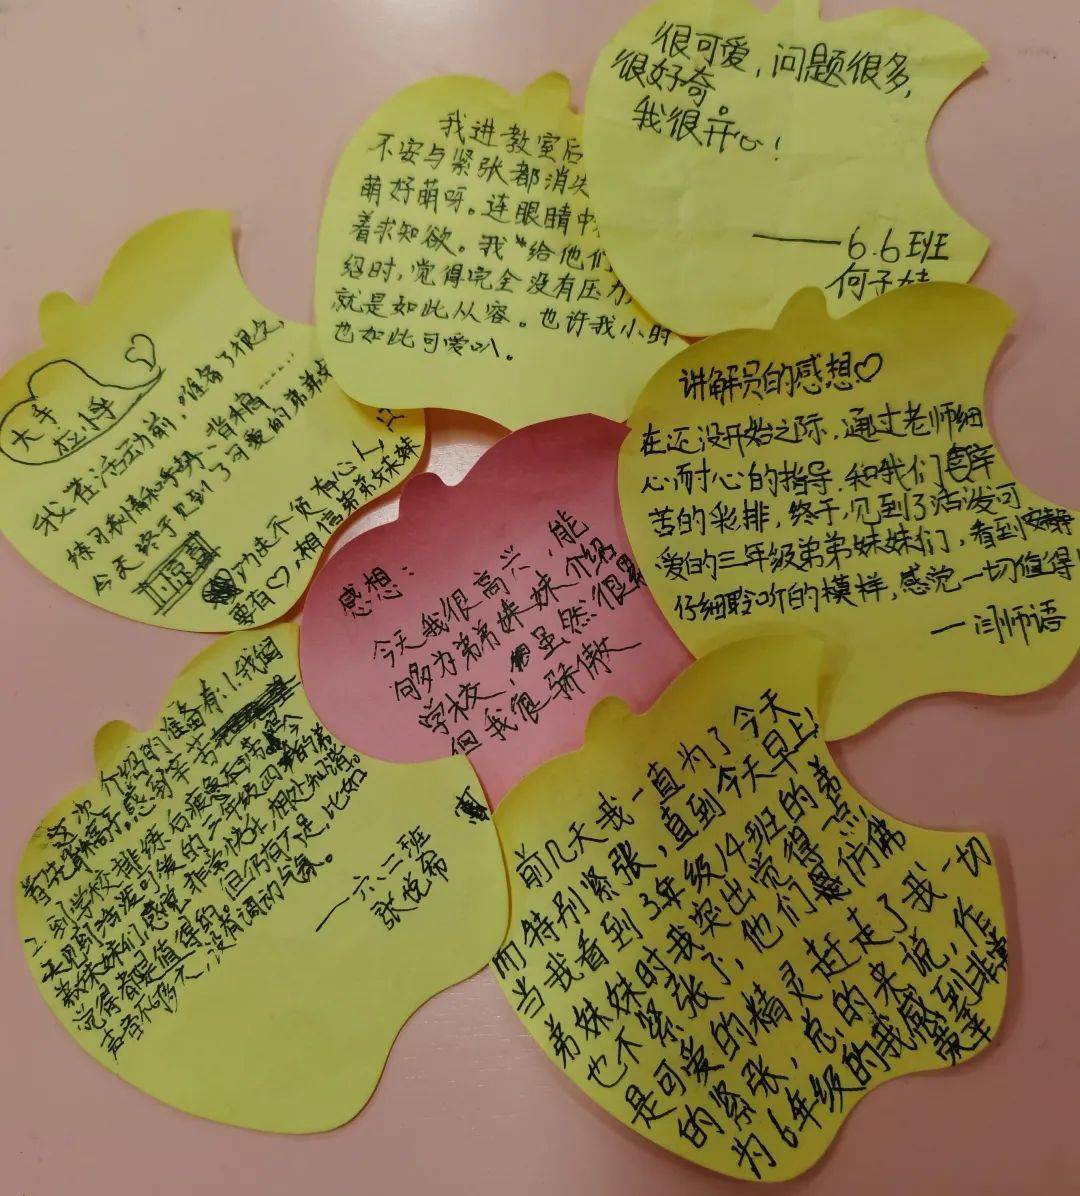 很可爱,问题很多,
很好奇。
我很开心!
——6.6班
何子
我进教室后
不安与紧张都消失
萌好萌呀。连眼睛中
着求知欲。我给他们
绍时,觉得完全没有压力
就是如此从容。也许我小时
也如此可爱叭。
大手
拉小手
我在活动前,准备了很久,
练习利
今天终于见到了可爱的弟弟妹
功夫不负有心人,
要有♡,相信弟弟妹妹
讲解员的感想♡
在还没开始之际,通过老师细
心耐心的指导,和我们辛
苦的彩排,终于,见到了活泼可
爱的三年级弟弟妹妹们,看到
仔细聆听的模样,感觉一切值得
一闫师语
感想:
今天我很高兴,能
够为弟弟妹妹介绍
学校,虽然很累
但我很骄傲
这次介绍的准备有:1.我
到学校排练后疲惫不
天见到活泼可爱的三年级四
弟妹妹们感觉非常快乐,
觉得都是值得的,但仍有不足,比如
声音不够大,没有
一六.二班
张悦希
前几天我一直为了今天
而特别紧张,直到今天早上
当我看到3年级14班的弟
弟妹妹时我突出觉得一点
也不紧张了,他们仿佛
是可爱的精灵赶走了我一切
的紧张,总的来说,作
为6年级的我感到非常
荣幸